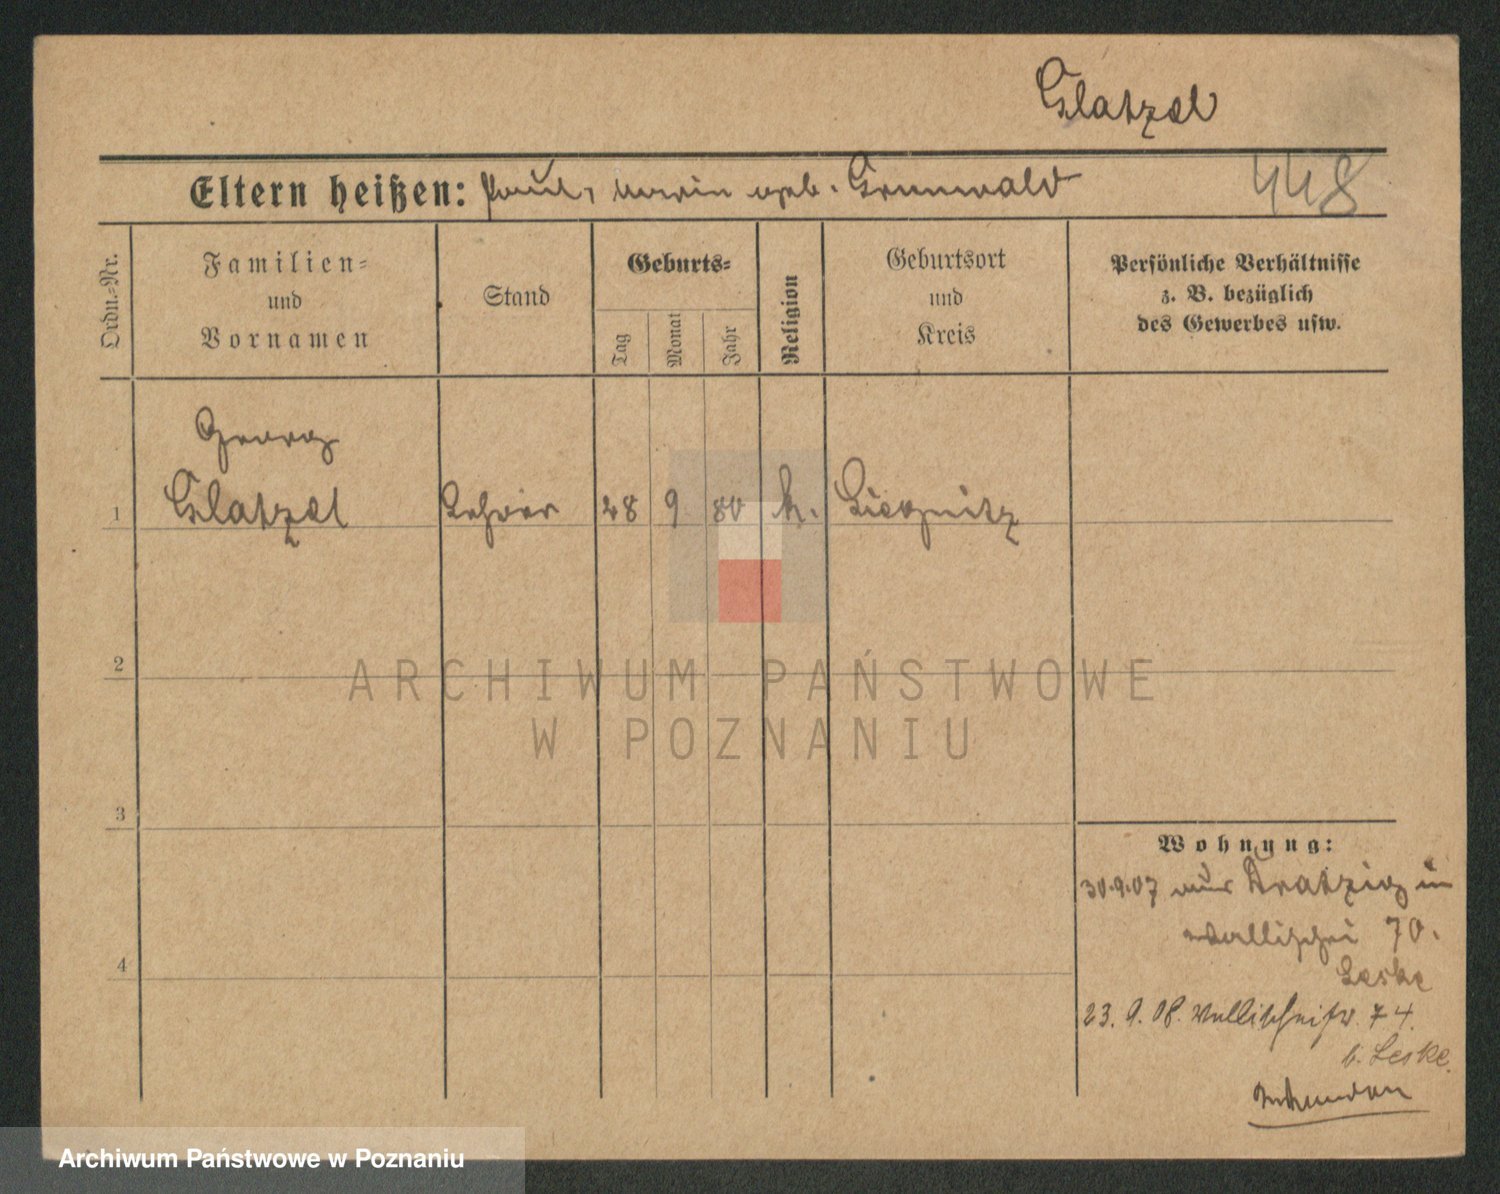 Glatzel
Eltern heißen: Paul, Maria geb. Grunwald
448
Ordn.-Nr.
Familien-
und
Vornamen
Stand
Geburts-
Tag
Monat
Jahr
Religion
Geburtsort
und
Kreis
Persönliche Verhältnisse
z. B. bezüglich
des Gewerbes usw.
Georg
1 Glatzel Lehrer 28 9 80 k. Liegnitz
2
ARCHIWUM PAŃSTWOWE
W POZNANIU
3
Wohnung:
30.9.07 aus Kratzig in
Wallischei 70.
Leske
4
23. 9. 08. Wallischeistr. 74.
b. Leske.
Archiwum Państwowe w Poznaniu